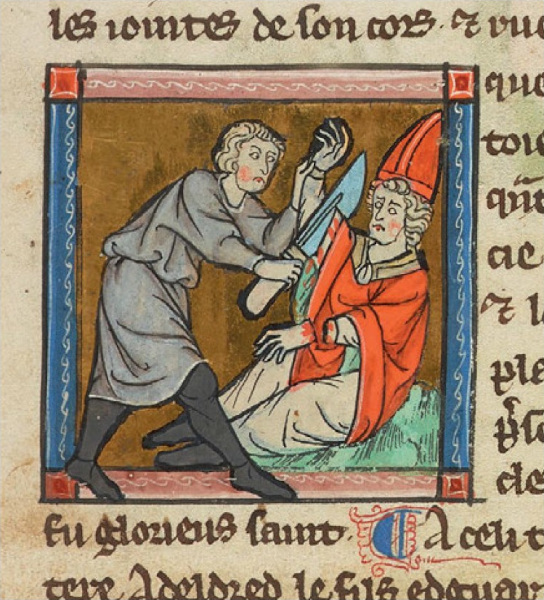 les iointes de son cors. ⁊ vue
que
toie
q̄nt
cie
⁊ l
ple
cle
fu glorieus saint. A celi t
tere Adeldred le fils edouar